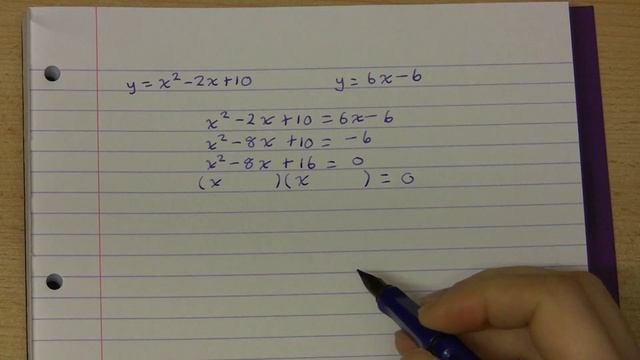 y = x² - 2x + 10    y = 6x - 6
x² - 2x + 10 = 6x - 6
x² - 8x + 10 = -6
x² - 8x + 16 = 0
(x    )(x    ) = 0